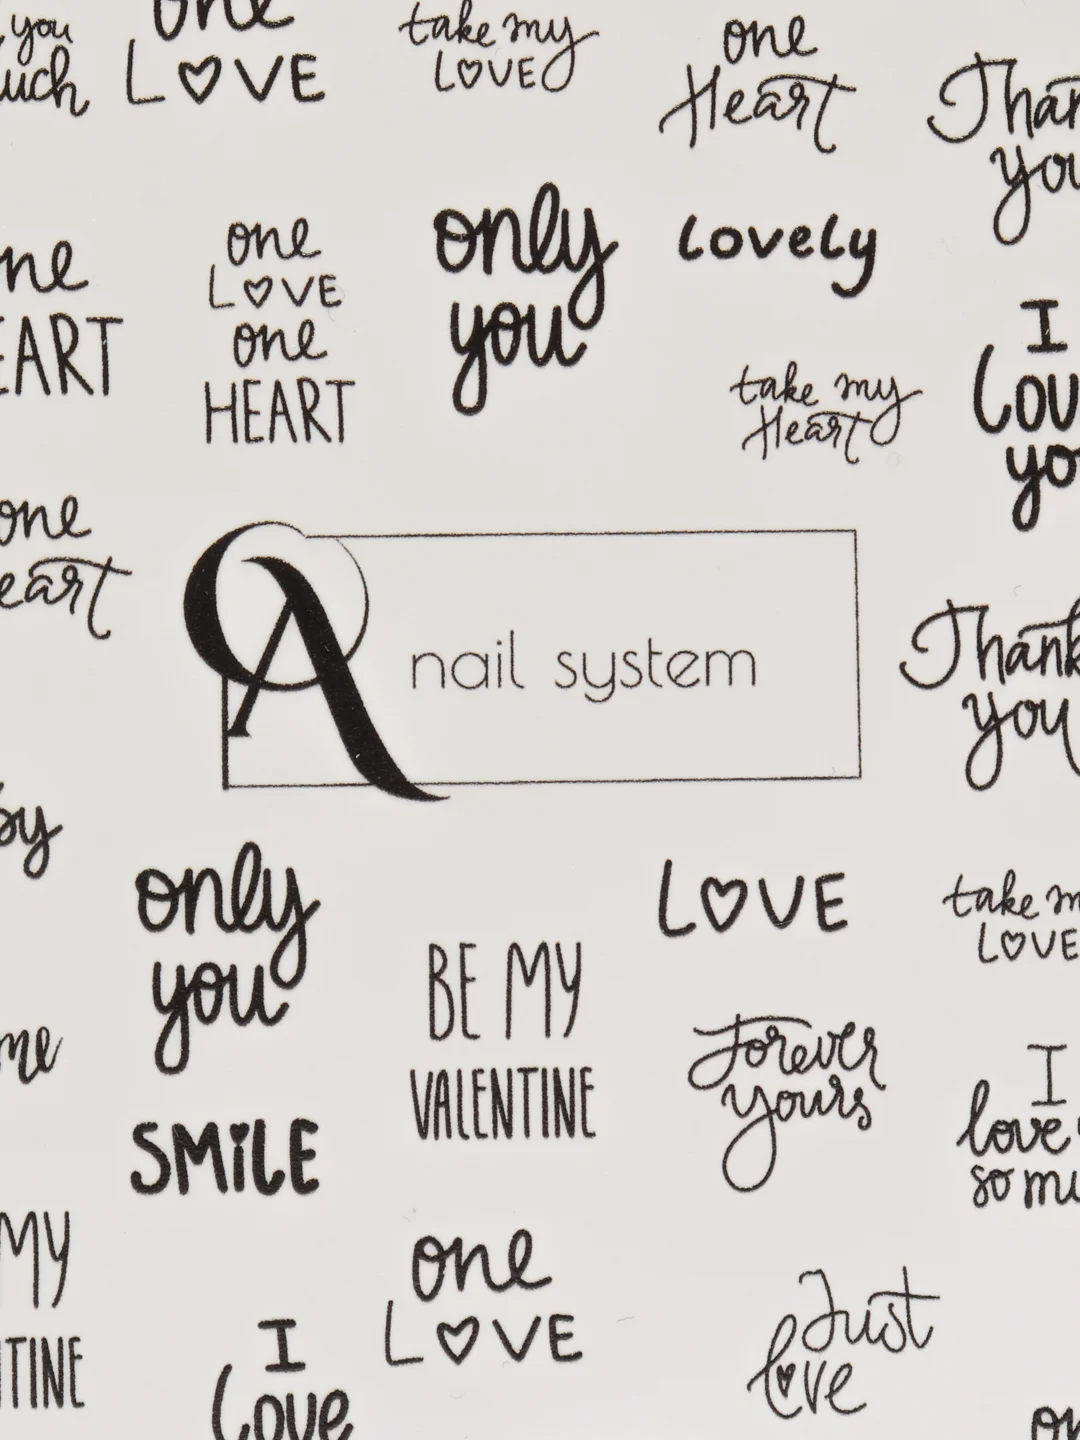 you
uch
one
LOVE
take my
LOVE
one
Heart
Than
you
ne
EART
one
LOVE
one
HEART
only
you
lovely
take my
Heart
I
Lov
yo
one
eart
nail system
Thank
you
by
only
you
LOVE
take m
LOVE
me
BE MY
VALENTINE
Forever
yours
I
love
so mu
SMiLE
MY
NTINE
one
LOVE
I
Love
Just
love
on